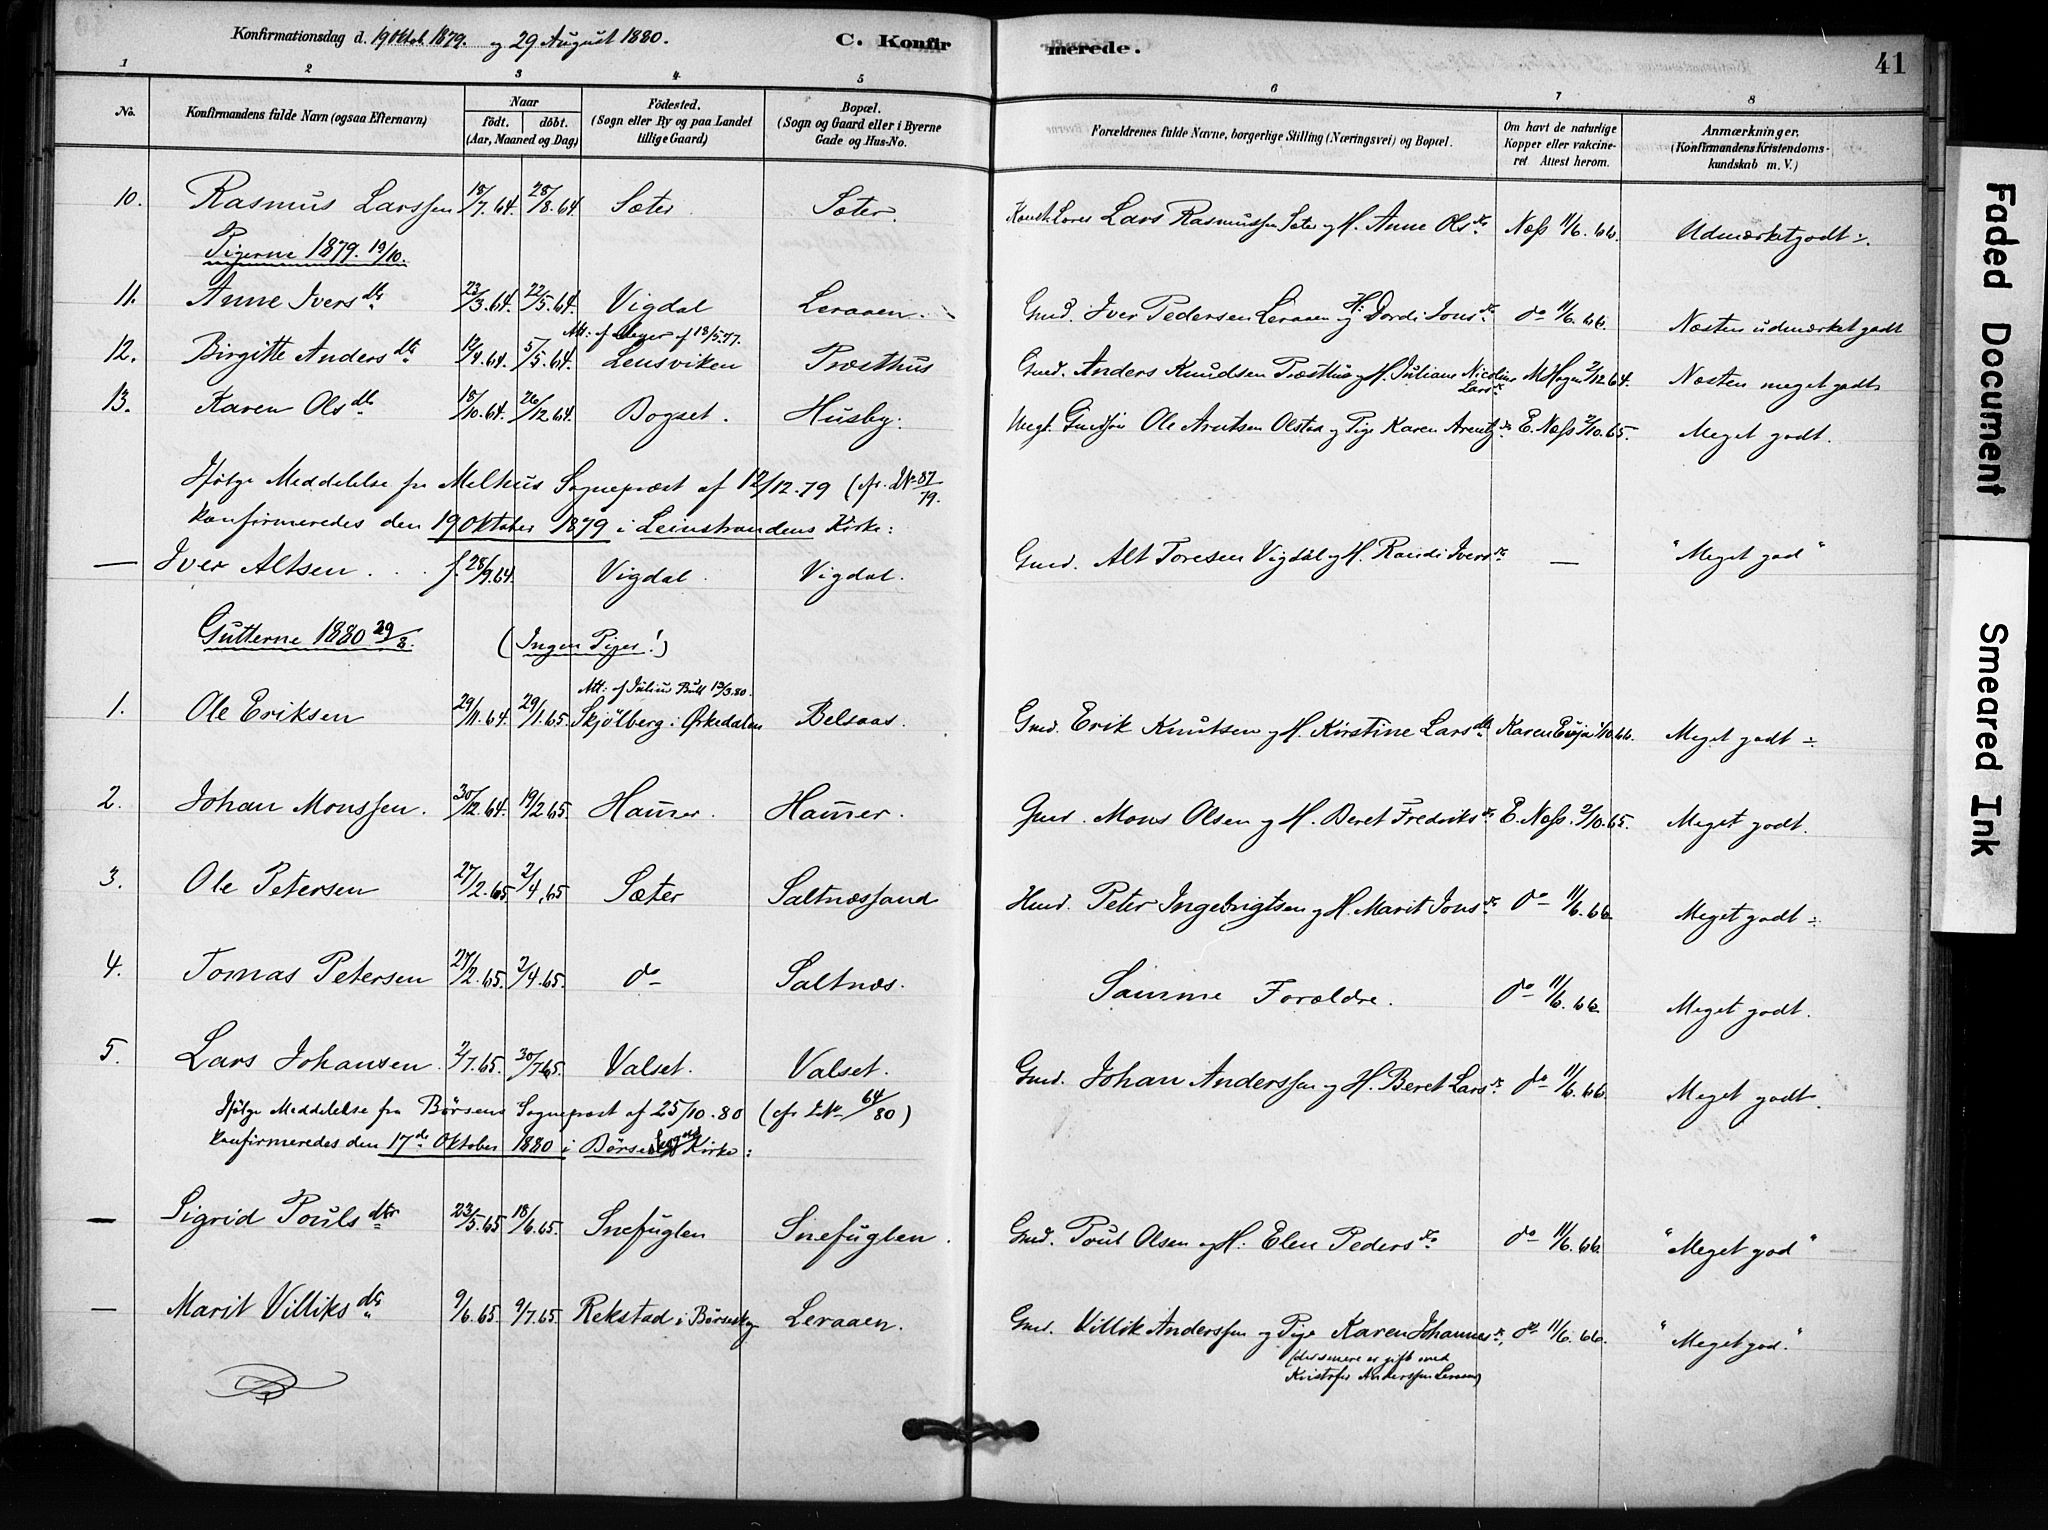 Konfirmationsdag d. 19 Oktob 1879. og 29 August 1880.
C. Konfirmerede.
41
1 2 3 4 5 6 7 8
No.
Konfirmandens fulde Navn (ogsaa Efternavn)
Naar
födt. döbt.
(Aar, Maaned og Dag)
Födested.
(Sogn eller By og paa Landet
tillige Gaard)
Bopæl.
(Sogn og Gaard eller i Byerne
Gade og Hus-No.
Forældrenes fulde Navne, borgerlige Stilling (Næringsvei) og Bopæl.
Om havt de naturlige
Kopper eller vakcine-
ret Attest herom.
Anmærkninger.
(Konfirmandens Kristendoms-
kundskab m. V.)
10. Rasmus Larssen 18/7.64. 28/8.64. Sæter. Sæter. Lars Rasmussen Sæter og H. Anne Olsdr. Næss 11/6.66. Udmærketgodt ÷.
Pigerne 1879. 19/10.
11. Anne Iversdtr 23/3.64. 22/5.64. Vigdal Leraaen. Gmd. Iver Pedersen Leraaen og H. Dordi Jonsdr. do 11/6.66. Næsten udmærket godt
Att: af Meyer af 18/5.77.
12. Birgitte Andersdtr 12/4.64. 5/5.64. Lensviken Præsthus Gmd. Anders Knudsen Præsthus og H. Juliane Nicoline Larsdr. M Hogn 2/12.64. Næsten meget godt
13. Karen Olsdtr 18/10.64. 26/12.64. Bogset. Husby. Ungk. Gmdsön Ole Arntsen Olstad og Pige Karen Arentzdr E. Næss 2/10.65. Meget godt.
Ifölge Meddelelse fra Melhus Sognepræst af 12/12.79 (cfr. INo 87/79.
konfirmeredes den 19 Oktober 1879 i Leinstrandens Kirke:
— Iver Altsen . . f. 28/9.64. Vigdal. Vigdal. Gmd. Alt Toresen Vigdal og H. Randi Iversdr. — "Meget god"
Gutterne 1880 29/8. (Ingen Piger!)
Att: af Julius Bull 13/3.80.
1. Ole Eriksen 29/11.64. 29/1.65. Skjölberg i Orkedalen Belsaas. Gmd. Erik Knutsen og H. Kirstine Larsdtr Karen Evja 1/10.66. Meget godt ÷.
2. Johan Monssen. 30/12.64. 19/2.65. Hamer. Hamer. Gmd. Mons Olsen og H. Beret Fredriksdr. E. Næss. 2/10.65. Meget godt.
3. Ole Petersen 27/2.65 2/4.65 Sæter Saltnæssand Hmd. Peter Ingebrigtsen og H. Marit Jonsdr. do 11/6.66. Meget godt ÷
4. Tomas Petersen 27/2.65. 2/4.65. do Saltnæs. Samme Forældre. do 11/6.66. Meget godt.
5. Lars Johansen. 2/7.65. 30/7.65. Valset. Valset. Gmd. Johan Anderssen og H. Beret Larsdr. do 11/6.66. Meget godt.
Ifölge Meddelelse fra Börsens Sognepræst af 25/10.80 (cfr INo 64/80)
konfirmeredes den 17de Oktober 1880 i Börse Kirke:
— Sigrid Poulsdtr 23/5.65 18/6.65. Snefuglen Snefuglen. Gmd. Poul Olsen og H. Elen Pedersdr. do 11/6.66. "Meget god"
— Marit Villiksdtr 9/6.65. 9/7.65. Rekstad i Börseskg Leraaen. Gmd. Villik Anderssen og Pige Karen Johannesdr. do 11/6.66. "Meget god."
(der senere er gift med
Kristofer Anderssen Leraaen)
Faded Document
Smeared Ink